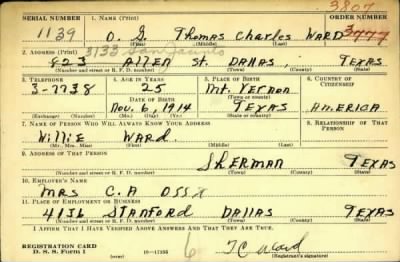 3807
SERIAL NUMBER 1. NAME (Print) ORDER NUMBER
1139 O. G. Thomas Charles WARD 3777
(First) (Middle) (Last)
2. ADDRESS (Print) 3133 San Jacinto
823 Allen St. DALLAS, TEXAS
(Number and street or R. F. D. number) (Town) (County) (State)
3. TELEPHONE 4. AGE IN YEARS 5. PLACE OF BIRTH 6. COUNTRY OF CITIZENSHIP
3-7738 25 Mt. Vernon
DATE OF BIRTH (Town or county)
Nov. 6, 1914 TEXAS AMERICA
(Mo.) (Day) (Yr.) (State or country)
7. NAME OF PERSON WHO WILL ALWAYS KNOW YOUR ADDRESS 8. RELATIONSHIP OF THAT PERSON
Willie WARD.
(Mr., Mrs., Miss) (First) (Middle) (Last)
9. ADDRESS OF THAT PERSON
SHERMAN TEXAS
(Number and street or R. F. D. number) (Town) (County) (State)
10. EMPLOYER'S NAME
MRS C. A
11. PLACE OF EMPLOYMENT OR BUSINESS
4136 STANFORD DALLAS TEXAS
(Number and street or R. F. D. number) (Town) (County) (State)
I AFFIRM THAT I HAVE VERIFIED ABOVE ANSWERS AND THAT THEY ARE TRUE.
REGISTRATION CARD
D. S. S. Form 1 16-17105 6 T C Ward
(over) (Registrant's signature)